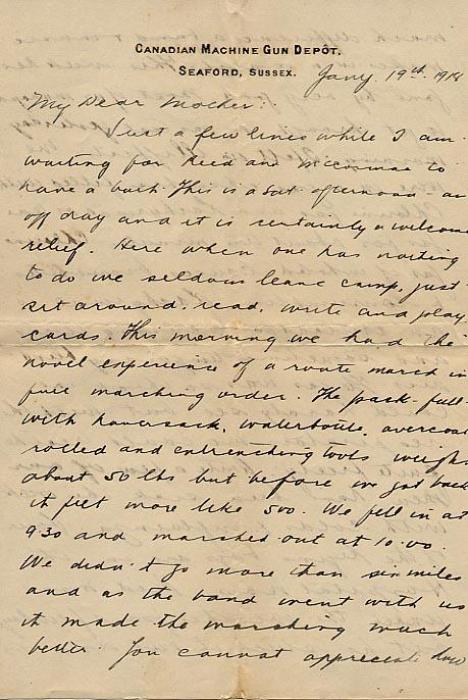 CANADIAN MACHINE GUN DEPÔT.
SEAFORD, SUSSEX. Jany. 19th. 1918
My Dear Mother:
Just a few lines while I am
waiting for Reid and to
have a bath. This is a Sat. afternoon an
off day and it is certainly a welcome
relief. Here when one has nothing
to do we seldom leave camp, just
sit around, read, write and play
cards. This morning we had the
novel experience of a route march in
full marching order. The pack-full-
with haversack, waterbottle, overcoat
rolled and entrenching tools weighs
about 50 lbs but before we got back
it felt more like 500. We fell in at
9.30 and marched out at 10.00.
We didn't go more than six miles
and as the band went with us
it made the marching much
better. You cannot appreciate how